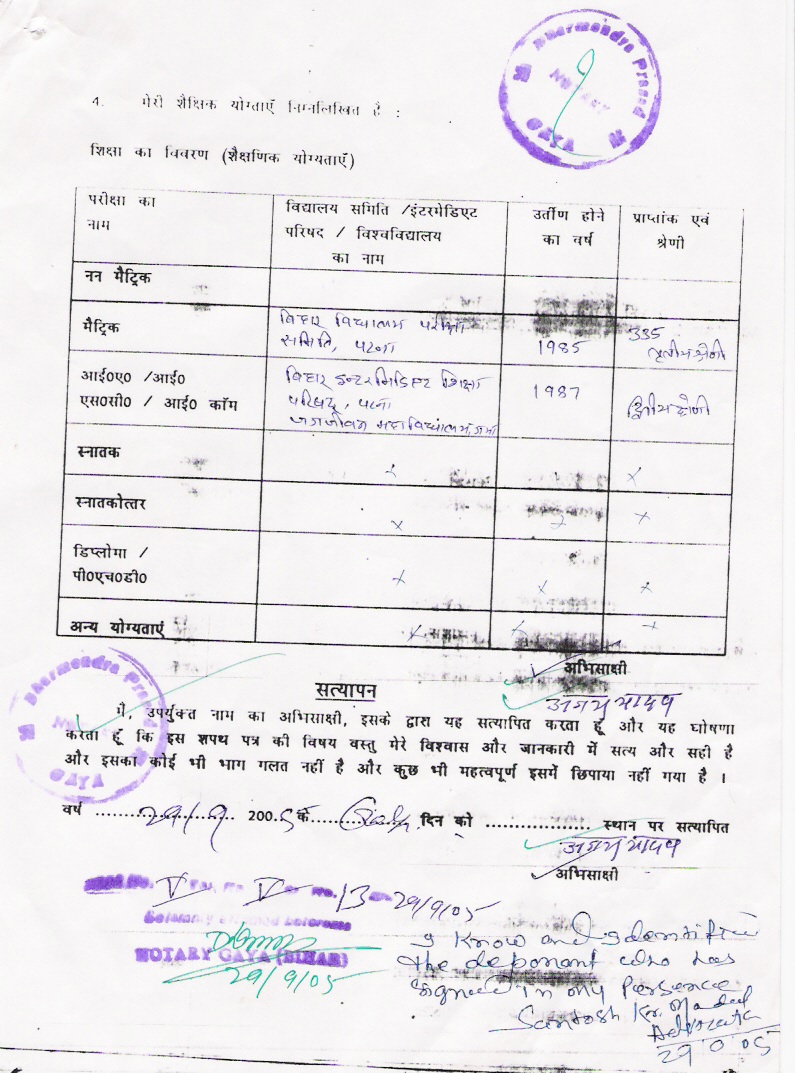 Dharmendra Prasad
NOTARY
GAYA
4. मेरी शैक्षिक योग्ताएँ निम्नलिखित है :
शिक्षा का विवरण (शैक्षणिक योग्यताएँ)
परीक्षा का नाम
विद्यालय समिति /इंटरमेडिएट परिषद / विश्वविद्यालय का नाम
उर्तीण होने का वर्ष
प्राप्तांक एवं श्रेणी
नन मैट्रिक
मैट्रिक
बिहार विद्यालय परीक्षा
समिति, पटना
1985
335
तृतीय श्रेणी
आई०ए० /आई०
एस०सी० / आई० कॉम
बिहार इन्टरमिडिएट शिक्षा
परिषद्, पटना
जगजीवन महाविद्यालय, गया
1987
द्वितीय श्रेणी
स्नातक
x x
स्नातकोत्तर
x x x
डिप्लोमा /
पी०एच०डी०
x x x
अन्य योग्यताएं
x x x
अभिसाक्षी
अजय यादव
Dharmendra Prasad
NOTARY
GAYA
सत्यापन
मै, उपर्युक्त नाम का अभिसाक्षी, इसके द्वारा यह सत्यापित करता हूँ और यह घोषणा
करता हूँ कि इस शपथ पत्र की विषय वस्तु मेरे विश्वास और जानकारी में सत्य और सही है
और इसका कोई भी भाग गलत नहीं है और कुछ भी महत्वपूर्ण इसमें छिपाया नहीं गया है ।
वर्ष ....29/9.... 200.5 के.......... दिन को .................. स्थान पर सत्यापित
अजय यादव
अभिसाक्षी
No. V No. V No. 13 29/9/05
NOTARY GAYA (BIHAR)
29/9/05
I Know and Identifie
the deponant who has
Signed in my Persence
Santosh Kr. Mandal
Advocate
29 0 05